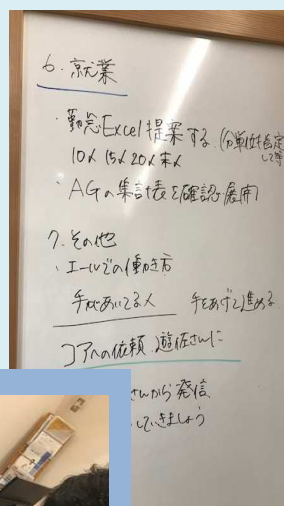 6. 就業
・勤怠Excel提案する.(分単位も
10人 15人 20人 末人
・AGの集計表を確認、展開
7. その他
・エールでの働き方
手があいてる人 手をあげて進める
コアへの依頼 遊佐さんに
さんから発信
していきましょう